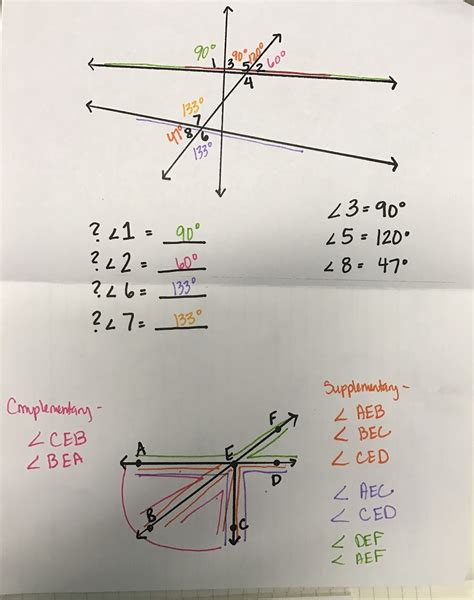 90° 90° 120° 60°
1 3 5 2
4
133°
7
47° 8 6
133°
∠3 = 90°
∠5 = 120°
∠8 = 47°
? ∠1 = 90°
? ∠2 = 60°
? ∠6 = 133°
? ∠7 = 133°
Complementary -
∠CEB
∠BEA
Supplementary -
∠AEB
∠BEC
∠CED
∠AEC
∠CED
∠DEF
∠AEF
F
A E D
B C